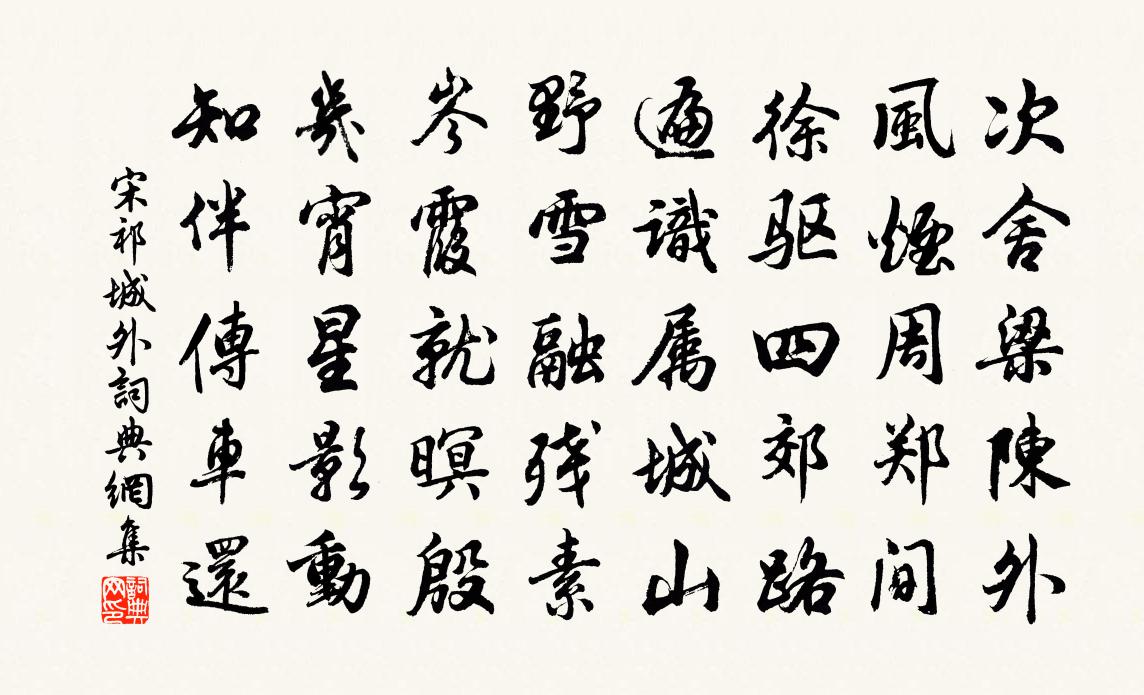 次舍梁陳外
風煙周郑間
徐驱四郊路
遍識属城山
野雪融残素
岑霞就暝殷
幾宵星影動
知伴傳車還
宋祁城外詞典網集
詞典网印